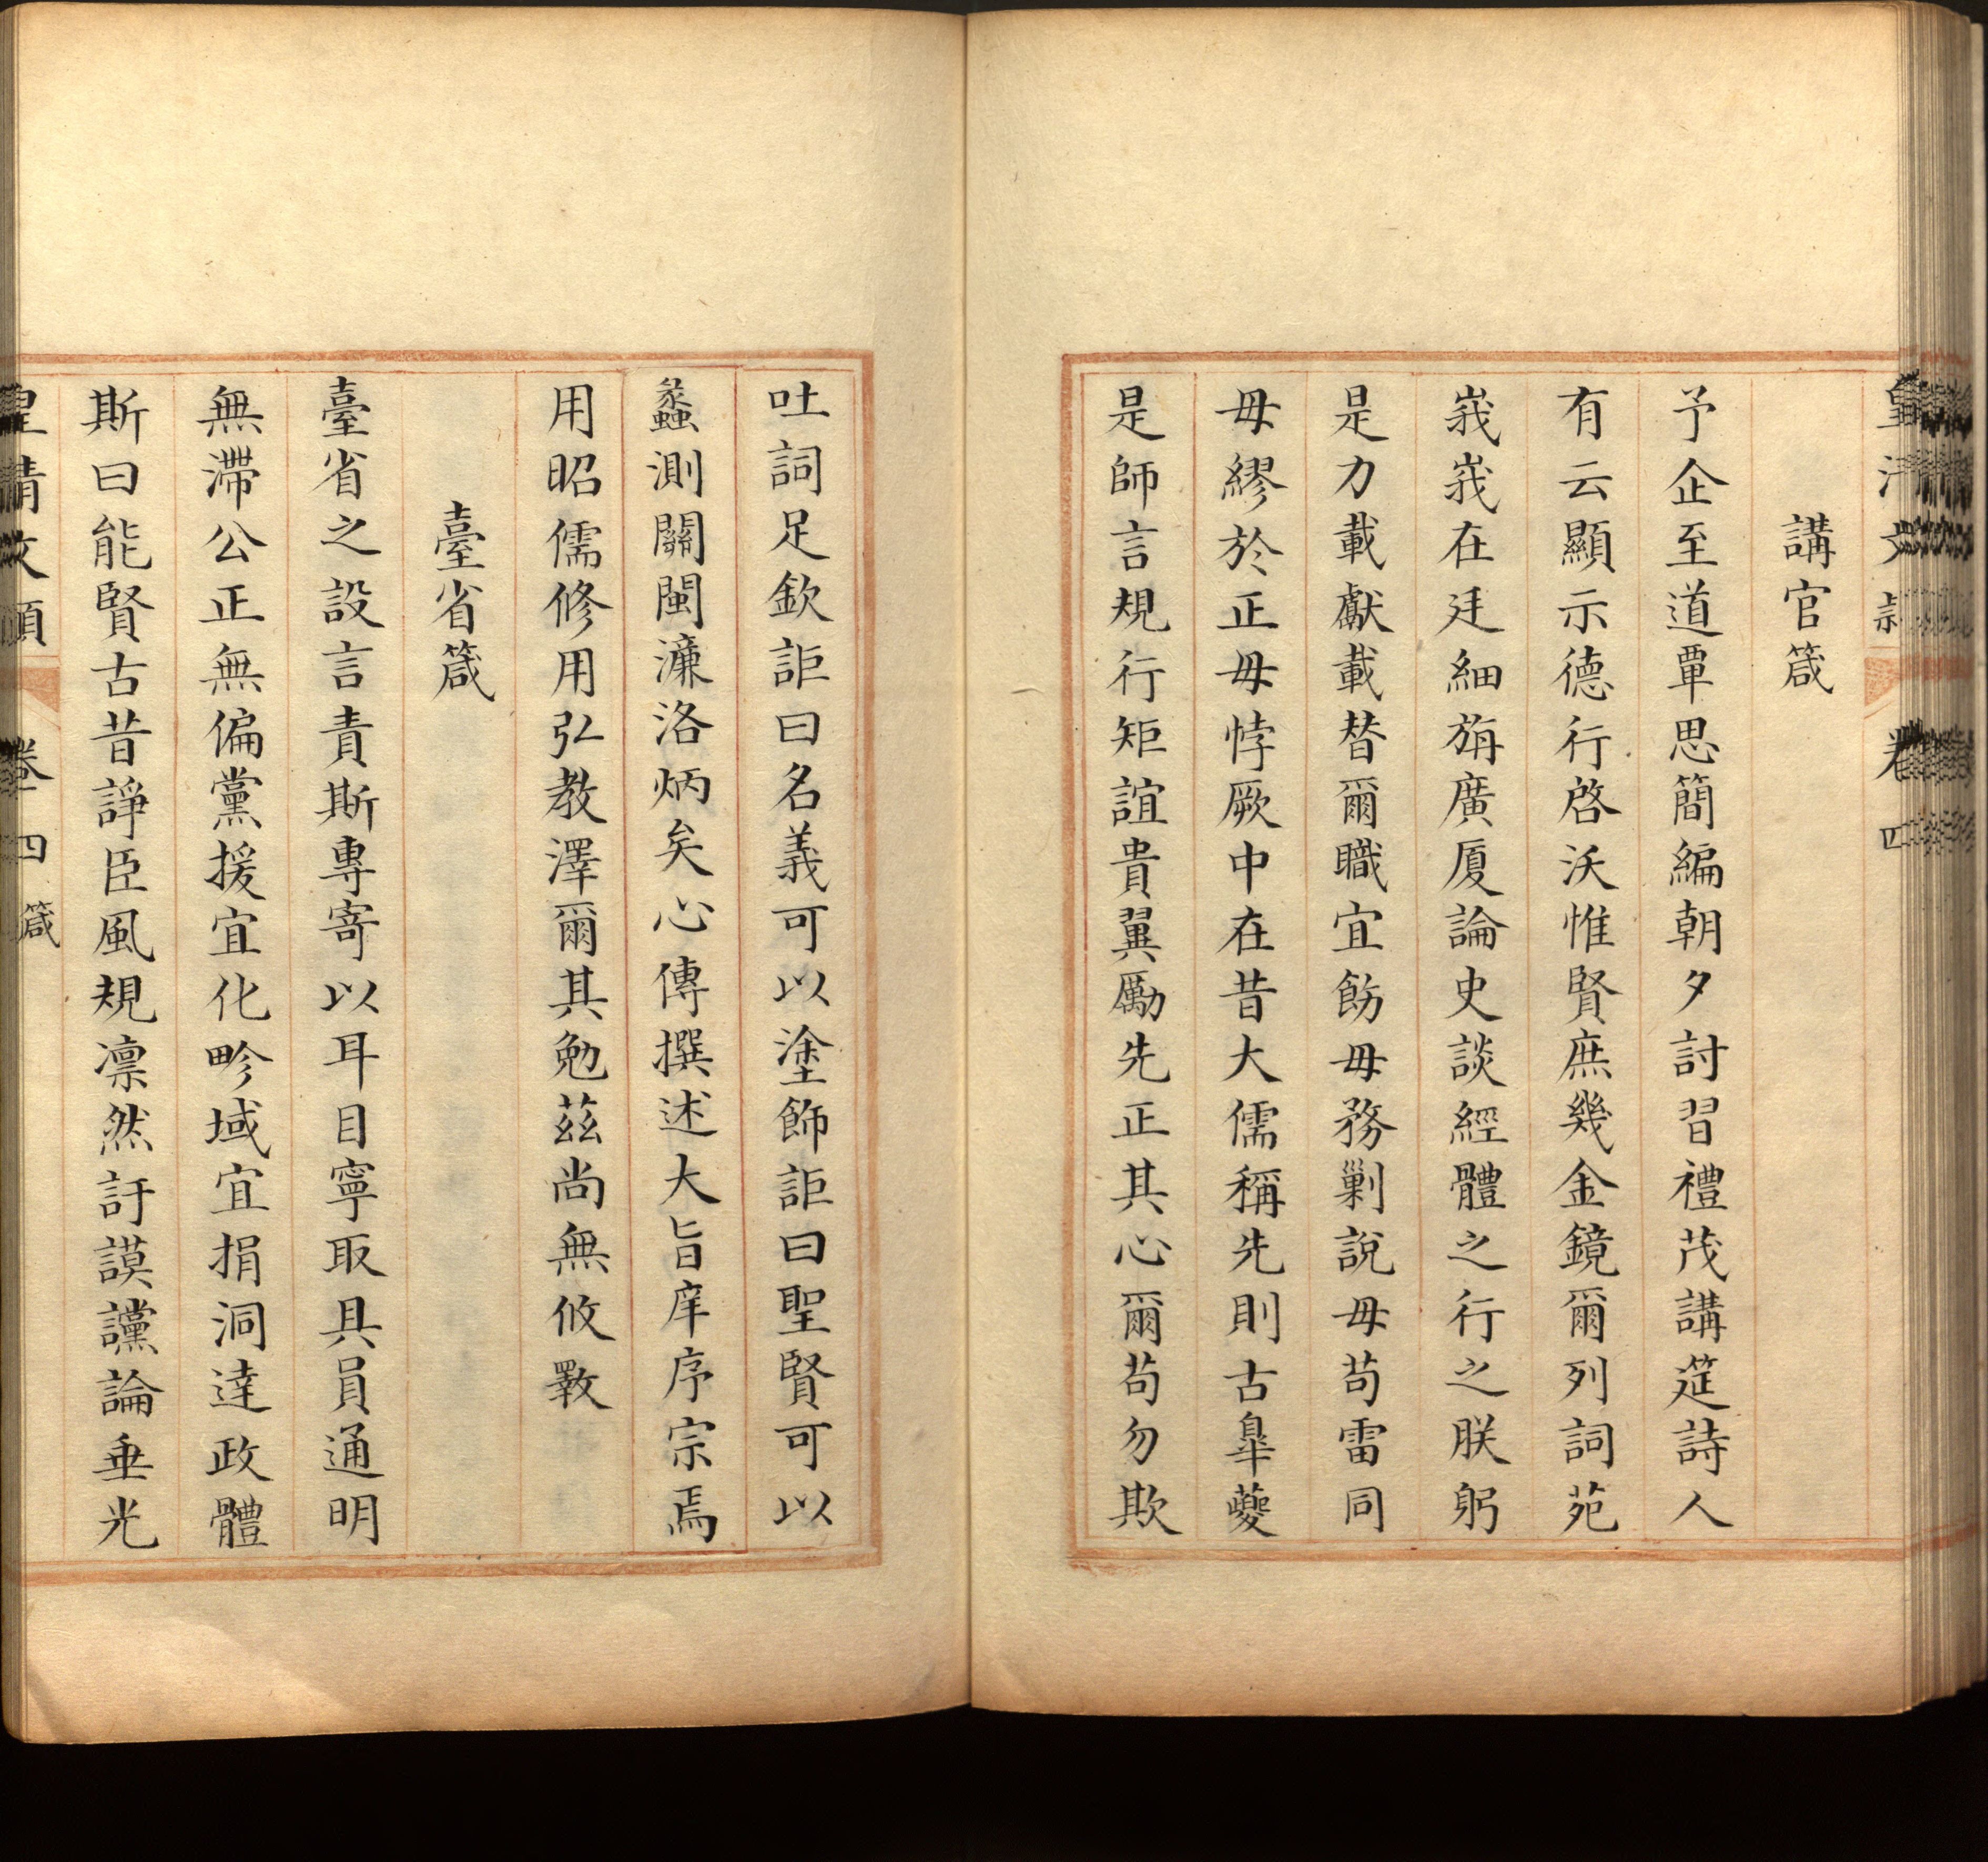 皇清文穎 卷四
講官箴
予企至道覃思簡編朝夕討習禮茂講筵詩人
有云顯示德行啓沃惟賢庶幾金鏡爾列詞苑
峩峩在廷細旃廣厦論史談經體之行之朕躬
是力載獻載替爾職宜飭毋務剿說毋苟雷同
毋繆於正毋悖厥中在昔大儒稱先則古臯夔
是師言規行矩誼貴翼勵先正其心爾苟勿欺
吐詞足欽詎曰名義可以塗飾詎曰聖賢可以
蠡測關閩濂洛炳矣心傳撰述大旨庠序宗焉
用昭儒修用弘教澤爾其勉茲尚無攸斁
臺省箴
臺省之設言責斯專寄以耳目寧取具員通明
無滯公正無偏黨援宜化畛域宜捐洞達政體
斯曰能賢古昔諍臣風規凛然訏謨讜論垂光
皇清文穎 卷四 箴